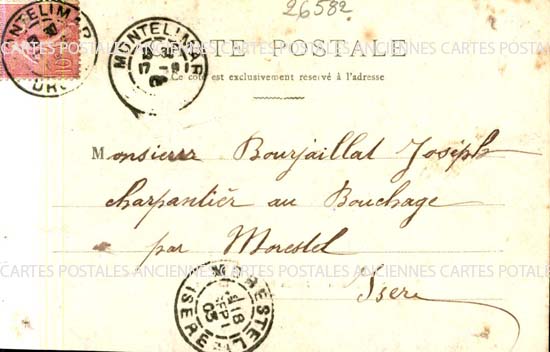 26582
CARTE POSTALE
Ce côté est exclusivement réservé à l'adresse
MONTELIMAR
DRO
MONTELIMAR
Monsieur Bourjaillat Joseph
charpantiér au Bouchage
par Morestel
Isère
MORESTEL
18 SEPT 03
ISERE
CARTES POSTALES ANCIENNES CARTES POSTALES ANCIENNES CARTES POSTALES
CARTES POSTALES ANCIENNES CARTES POSTALES ANCIENNES CARTES POSTALES